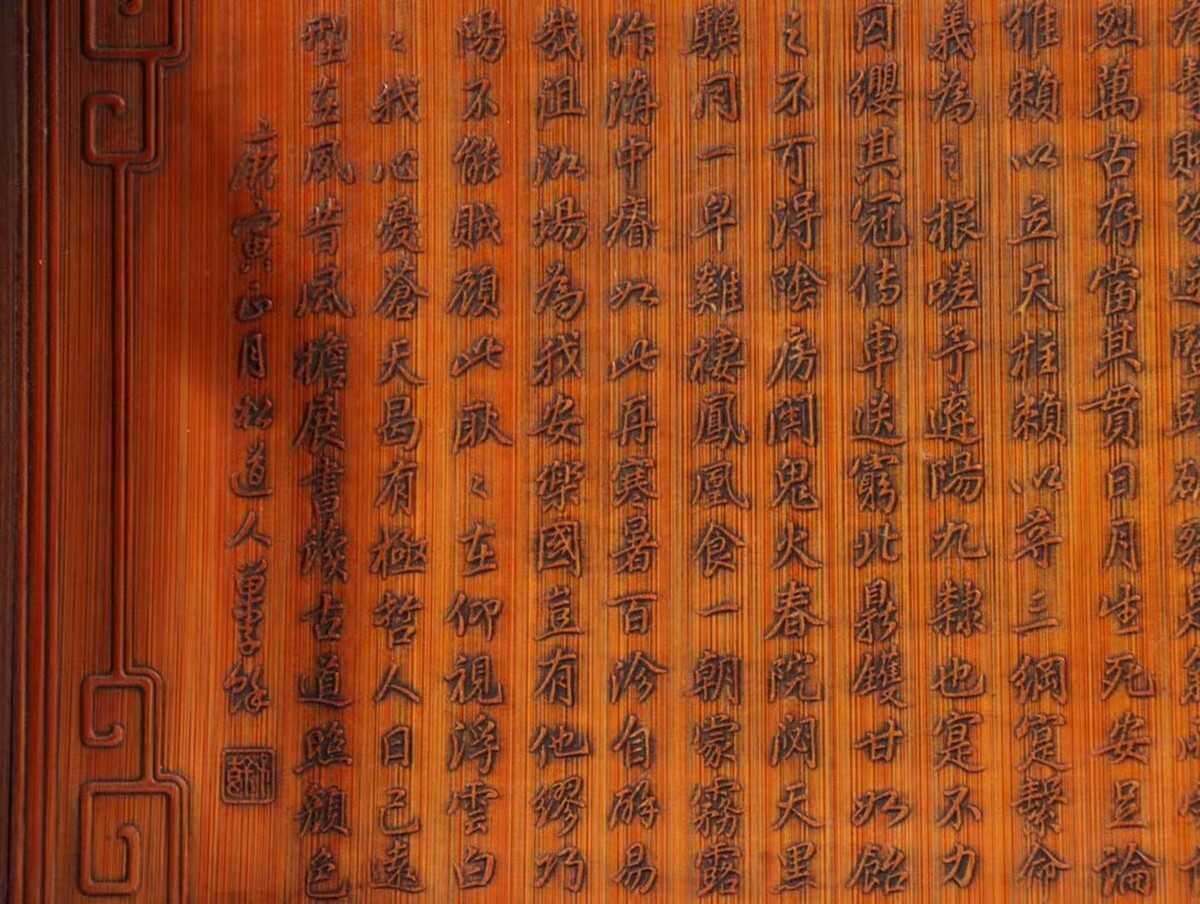 烈萬古存當其貫日月生死安足論
維賴以立天柱賴以尊三綱寔繫命
義為之根嗟予遘陽九隸也寔不力
囚纓其冠傳車送窮北鼎鑊甘如飴
之不可得陰房闃鬼火春院閟天黑
驥同一皁雞棲鳳凰食一朝蒙霧露
作溝中瘠如此再寒暑百沴自辟易
哉沮洳場為我安樂國豈有他繆巧
陽不能賊顧此耿〻在仰視浮雲白
〻我心憂蒼天曷有極哲人日已遠
型在夙昔風檐展書讀古道照顏色
庚寅正月松道人